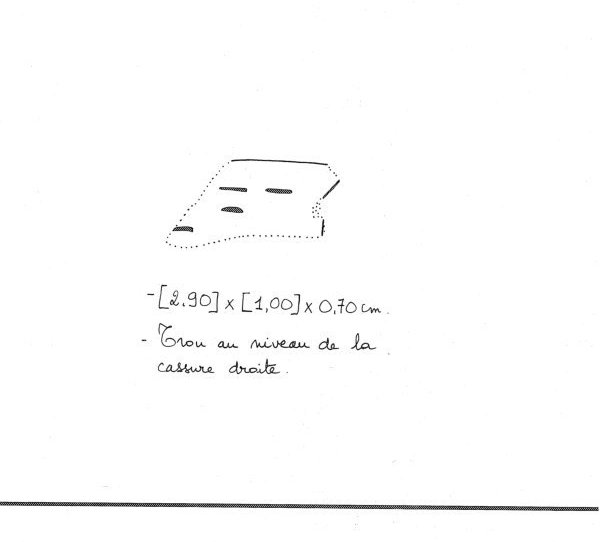 - [2,90] x [1,00] x 0,70 cm.
- Trou au niveau de la
cassure droite.